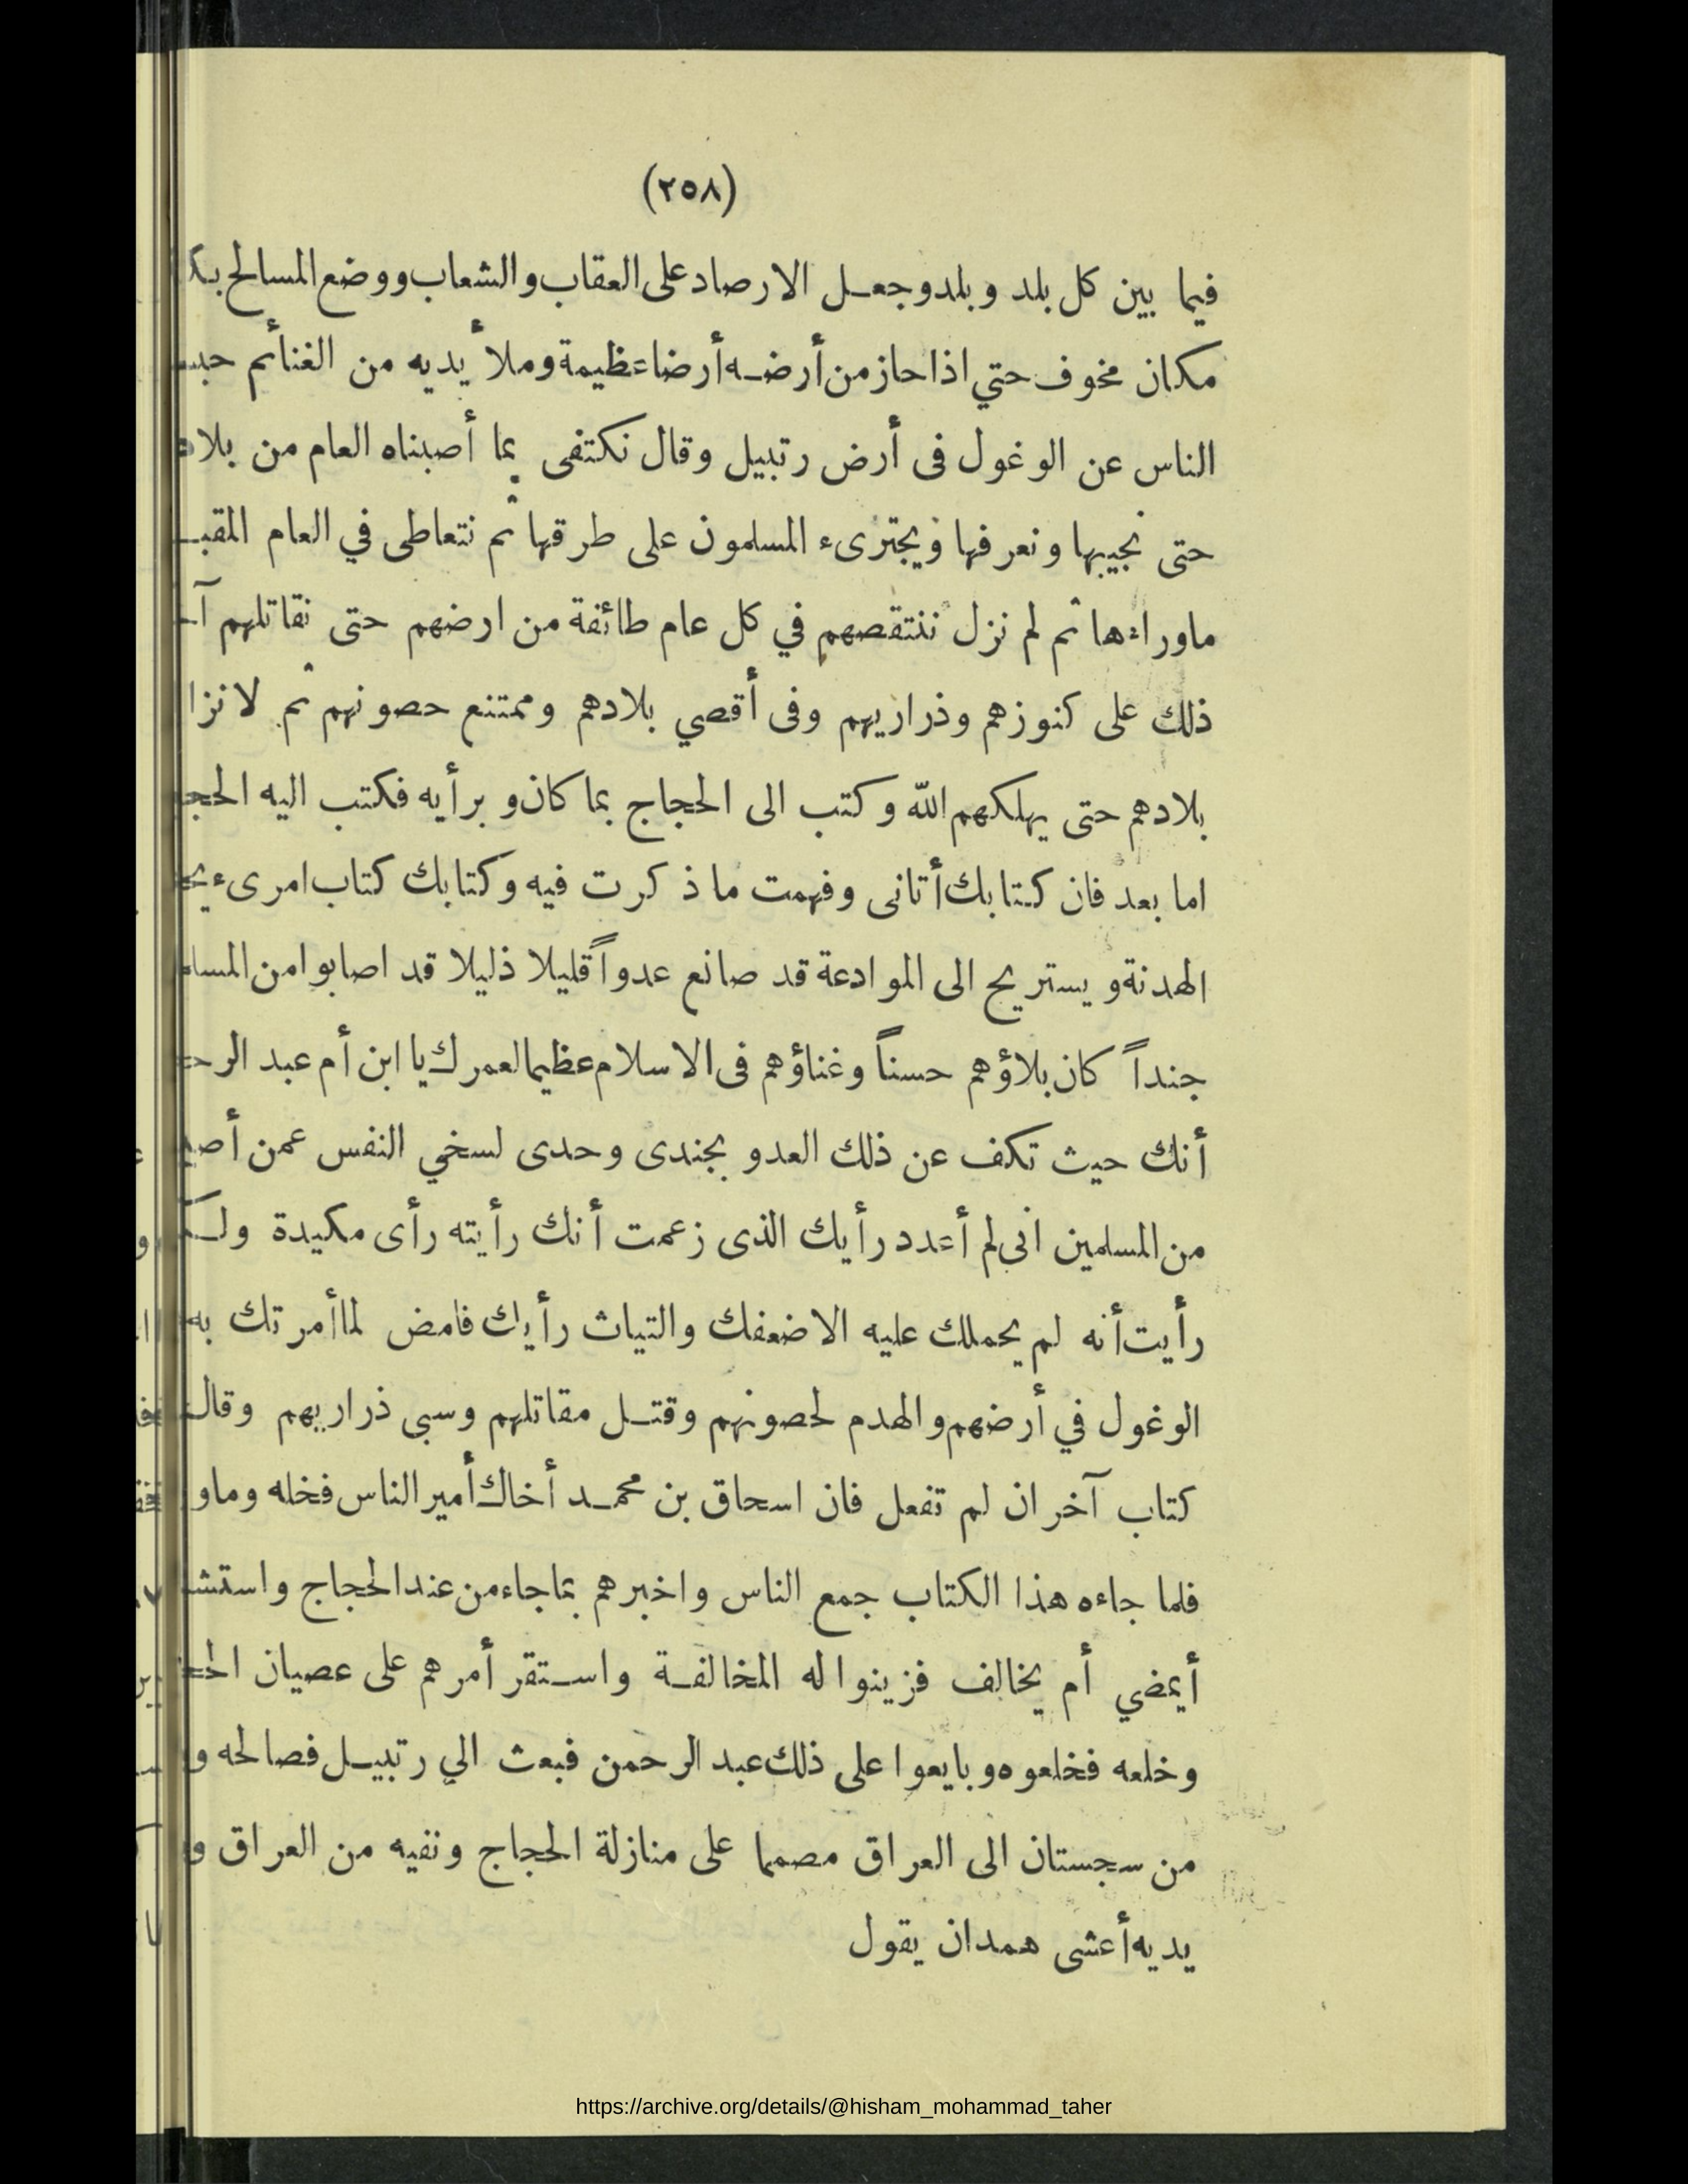 (٢٥٨)
فيما بين كل بلد وبلد وجعل الارصاد على العقاب والشعاب ووضع المسالح
مكان مخوف حتي اذا حاز من أرضه أرضا عظيمة وملأ يديه من الغنائم
الناس عن الوغول فى أرض رتبيل وقال نكتفى بما أصبناه العام من
حتى نجيبها ونعرفها ويجترىء المسلمون على طرقها ثم نتعاطى في العام
ماوراءها ثم لم نزل ننتقصهم في كل عام طائفة من ارضهم حتى نقاتلهم
ذلك على كنوزهم وذراريهم وفى أقصي بلادهم وممتنع حصونهم ثم
بلادهم حتى يهلكهم الله وكتب الى الحجاج بما كان وبرأيه فكتب اليه
اما بعد فان كتابك أتانى وفهمت ما ذكرت فيه وكتابك كتاب امرىء
الهدنة ويستريح الى الموادعة قد صانع عدواً قليلا ذليلا قد اصابوا من
جنداً كان بلاؤهم حسناً وغناؤهم فى الاسلام عظيما لعمرك يا ابن أم عبد
أنك حيث تكف عن ذلك العدو بجندى وحدى لسخي النفس عمن
من المسلمين انى لم أعدد رأيك الذى زعمت أنك رأيته رأى مكيدة
رأيت أنه لم يحملك عليه الا ضعفك والتياث رأيك فامض لما أمرتك به
الوغول في أرضهم والهدم لحصونهم وقتل مقاتلهم وسبى ذراريهم وقال
كتاب آخر ان لم تفعل فان اسحاق بن محمد أخاك أمير الناس فخله
فلما جاءه هذا الكتاب جمع الناس واخبرهم بما جاء من عند الحجاج
أيمضي أم يخالف فزينوا له المخالفة واستقر أمرهم على عصيان
وخلعه فخلعوه وبايعوا على ذلك عبد الرحمن فبعث الي رتبيل فصالحه
من سجستان الى العراق مصمما على منازلة الحجاج ونفيه من العراق
يديه أعشى همدان يقول
https://archive.org/details/@hisham_mohammad_taher